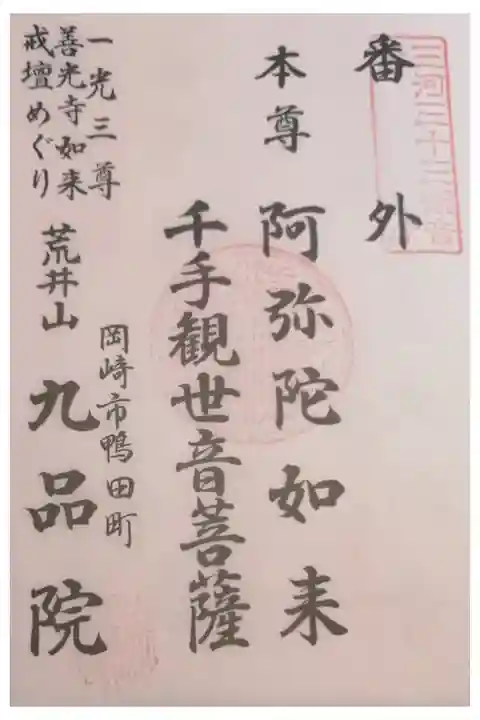 三河三十三観音
番外
本尊 阿弥陀如来
千手観世音菩薩
岡崎市鴨田町
荒井山 九品院
一光三尊
善光寺如来
戒壇めぐり